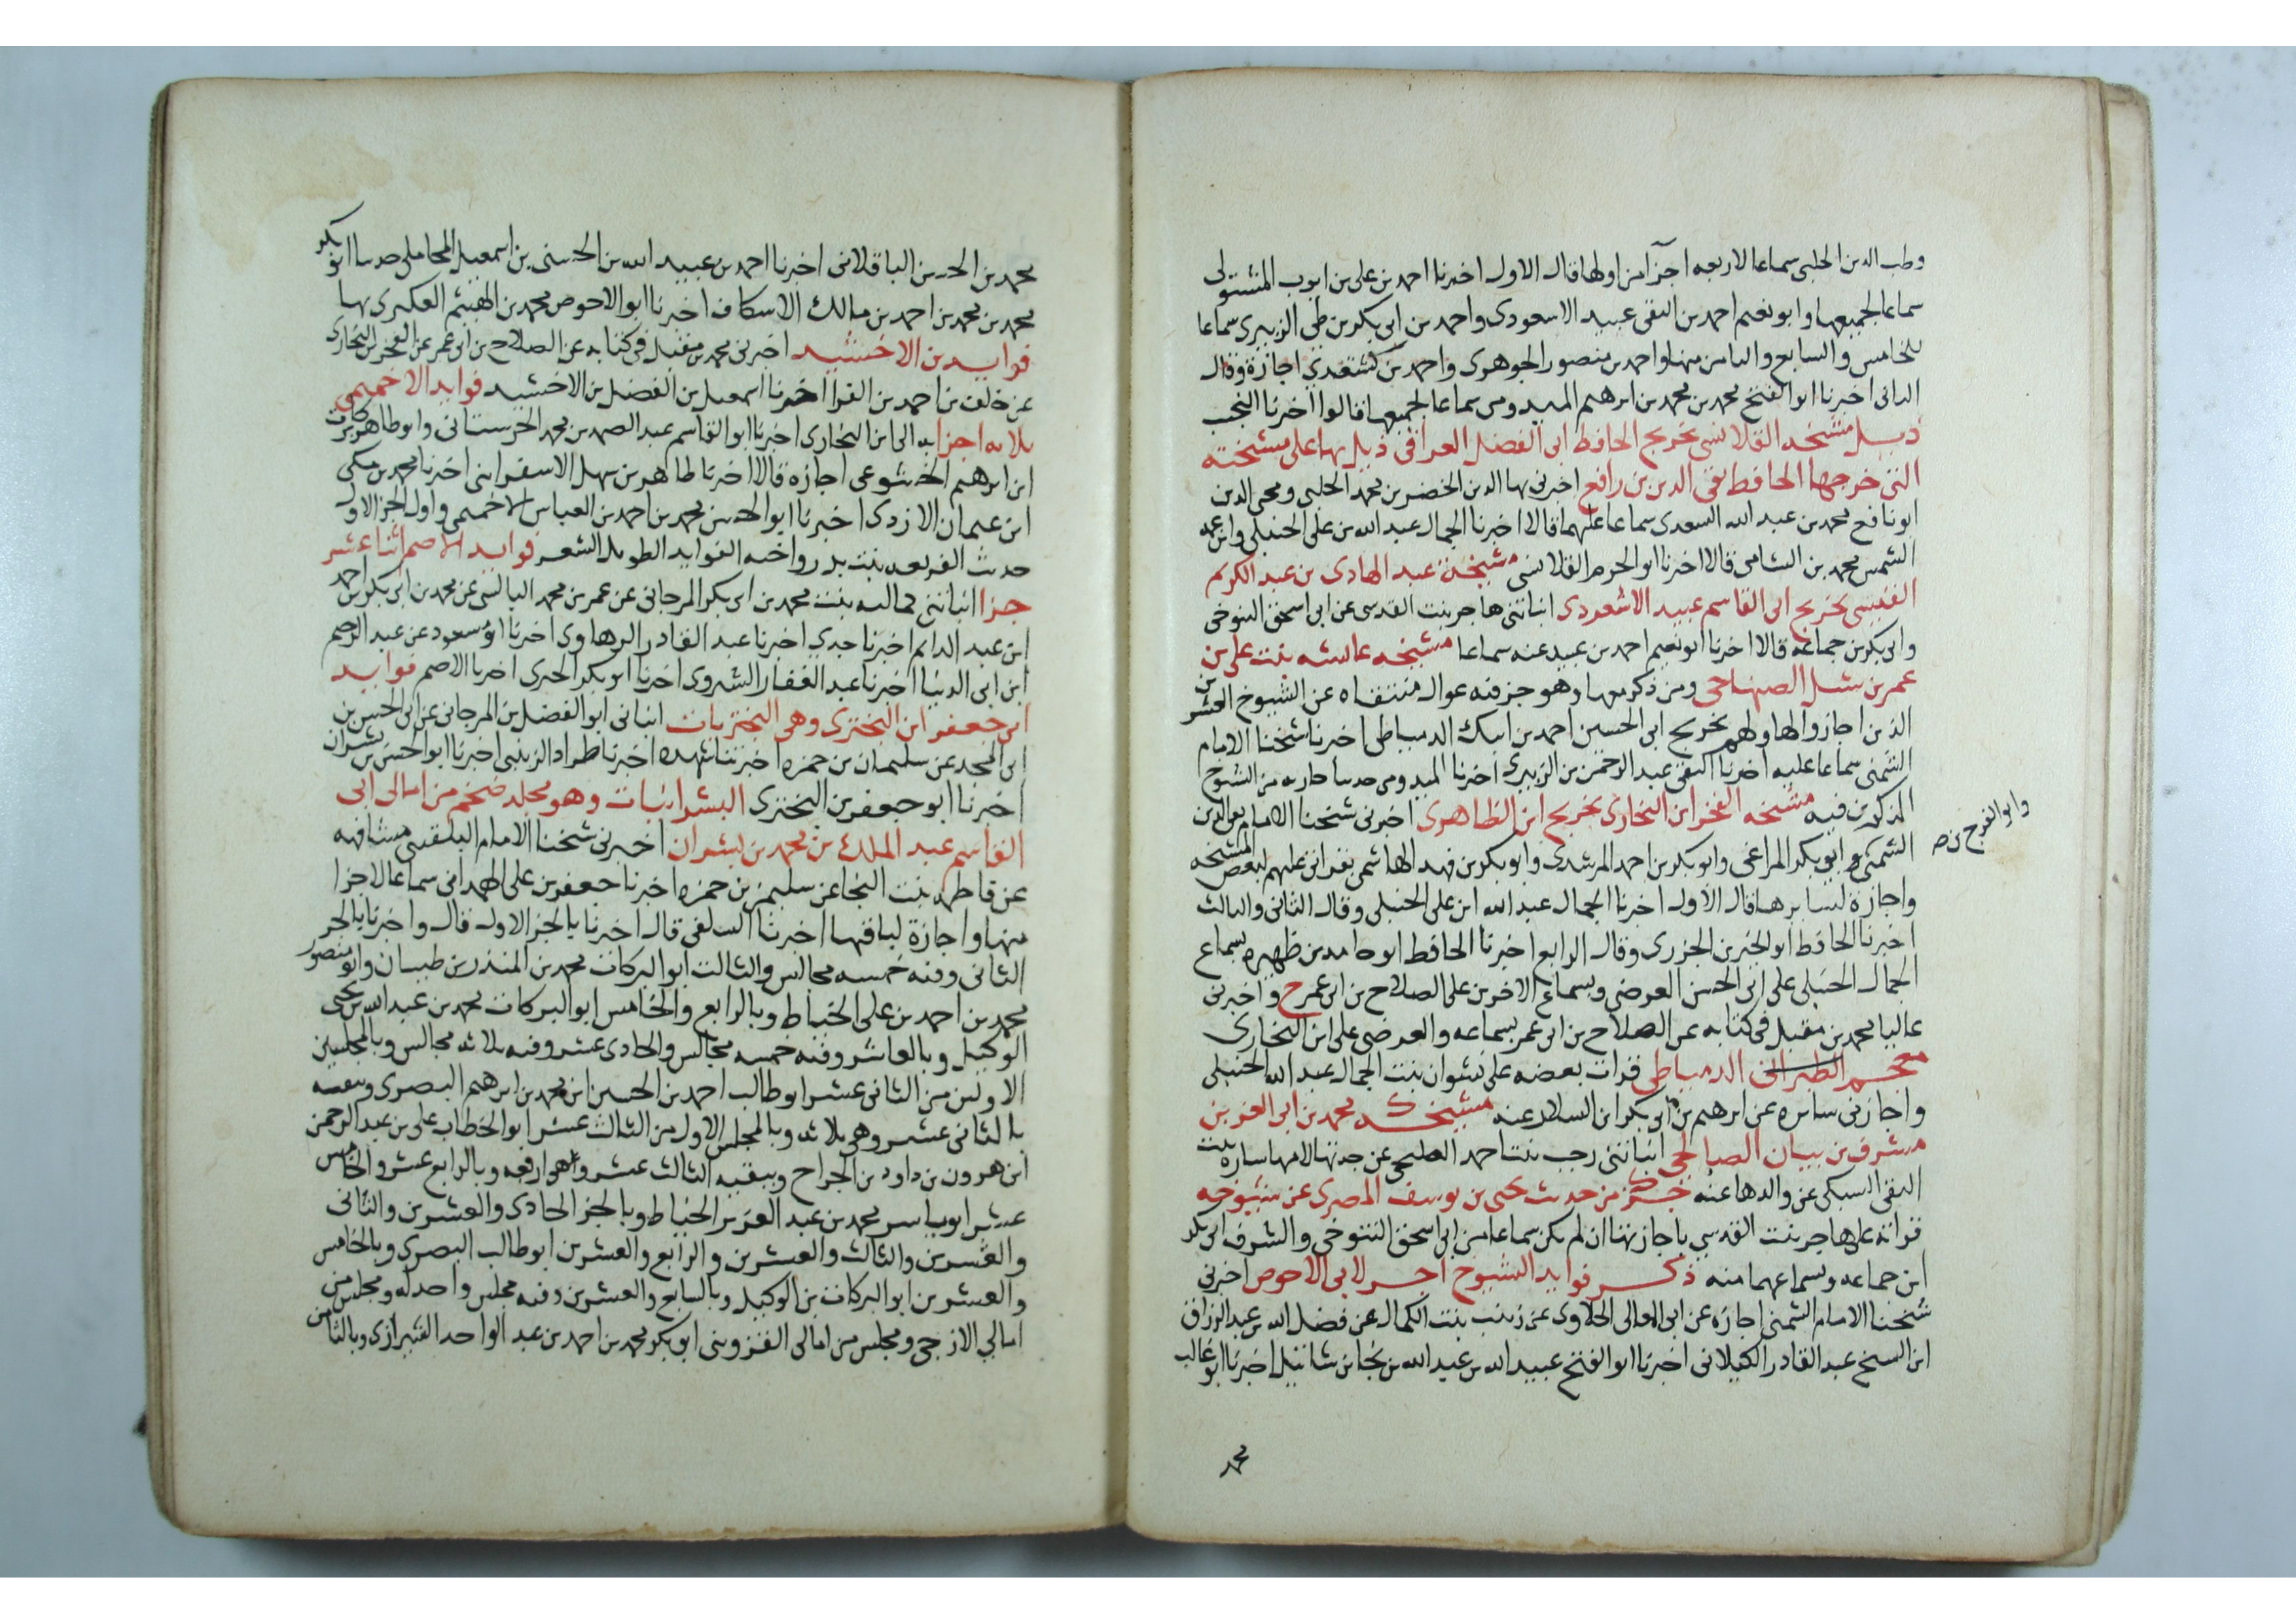 وطب الدين الحلبي سماعا لاربعه اجزآ من اولها قال الاول اخبرنا احمد بن على بن ايوب المشتولى
سماعا لجميعها وابو نعيم احمد بن التقى عبيد الاسعودى واحمد بن ابى بكر بن طى الزبيرى سماعا
للخامس والسابع والثامن منها واحمد بن منصور الجوهرى واحمد بن كشتغدي اجازة وقال
الثانى اخبرنا ابو الفتح محمد بن محمد بن ابرهيم الميدومى سماعا لجميعها قالوا اخبرنا النجيب
ذيل مشيخه القلانسى تخريج الحافظ ابى الفضل العراقى ذيل بها على مشيخته
التى خرجها الحافظ تقى الدين بن رافع اخبرنى بها الدين الخضر بن محمد الحلبى ومحى الدين
ابو نافع محمد بن عبد الله السعدى سماعا عليهما قالا اخبرنا الجمال عبد الله بن على الحنبلى وابن عمه
الشمس محمد بن الشامى قالا اخبرنا ابو الحرم القلانسى مشيخة عبد الهادى بن عبد الكريم
القيسى تخريج ابى القاسم عبيد الاشعودى انباتنى هاجر بنت القدسى عن ابى اسحق التنوخى
وابى بكر بن جماعة قالا اخبرنا ابو نعيم احمد بن عبيد عنه سماعا مشيخه عايشه بنت على بن
عمر بن شبل الصنهاجى ومن ذكر معها وهو جز فيه عوال منتقاه عن الشيوخ العشرين
الذين اجازوا لها ولهم تخريج ابى الحسين احمد بن ايبك الدمياطى اخبرنا شيخنا الامام
الشمنى سماعا عليه اخبرنا التقى عبد الرحمن بن الزبيرى اخبرنا الميدومى من الشيوخ
المذكورين فيه مشيخه الفخر ابن البخارى تخريج ابن الظاهرى اخبرنى شيخنا الامام تقى الدين
الشمنى وابو بكر المراغى وابو بكر بن احمد المرشدى وابو بكر بن فهد الهاشمى بقراتى عليهم لبعض المشيخه
وابو الفرج بن ص
واجازة لسايرها قال الاول اخبرنا الجمال عبد الله ابن على الحنبلى وقال الثانى والثالث
اخبرنا الحافظ ابو الخير بن الجزرى وقال الرابع اخبرنا الحافظ ابو حامد بن ظهيره بسماع
الجمال الحنبلى على ابى الحسن العرضى وبسماع الاخرين على الصلاح بن ابى عمر ح واخبرنى
عاليا محمد بن مقبل فى كتابه عن الصلاح بن ابى عمر بسماعه والعرضى على ابن البخارى
معجم الطبرانى الدمياطى قرات بعضه على نشوان بنت الجمال عبد الله الحنبلى
واجازنى سايره عن ابرهيم بن ابى بكر ابن السلار عنه مشيخـــه محمد بن ابى العز بن
مشرف بن بيان الصالحى انباتنى رجب بنت احمد القليجى عن جدتها لامها ساره بنت
التقى السبكى عن والدها عنه جــز من حديث يحيى بن يوسف المصرى عن شيوخه
قراته على هاجر بنت القدسي باجازتها ان لم يكن سماعا من ابى اسحق التنوخى والشرف ابى بكر
ابن جماعه وبسماعهما منه ذكــر فوايد الشيوخ اجــر لابى الاحوص اخبرنى
شيخنا الامام الشمنى اجازه عن ابى المعالى الحلاوى عن زينب بنت الكمال عن فضل الله بن عبد الرزاق
ابن الشيخ عبد القادر الكيلانى اخبرنا ابو الفتح عبيد الله بن عبد الله بن نجا بن شاتيل اخبرنا ابو غالب
محمد
محمد بن الحسن الباقلانى اخبرنا احمد بن عبيد الله بن الحسن بن اسمعيل المحاملى حدثنا ابو بكر
محمد بن محمد بن احمد بن مالك الاسكاف اخبرنا ابو الاحوص محمد بن الهيثم العكبرى بها
فوايد بن الاخشيد اخبرنى محمد بن مقبل فى كتابه عن الصلاح بن ابى عمر عن الفخر بن البخارى
عن خلف بن احمد بن الفرا اخبرنا اسمعيل بن الفضل بن الاخشيد فوايد الاخميمى
ثلاثه اجزا به الى ابن البخارى اخبرنا ابو القاسم عبد الصمد بن محمد الحرستانى وابو طاهر بركات
ابن ابرهيم الخشوعى اجازة قالا اخبرنا طاهر بن سهل الاسفراينى اخبرنا محمد بن مكى
ابن عثمان الازدى اخبرنا ابو الحسن محمد بن احمد بن العباس الاخميمى واول الجز الاول
حديث الفريعه بنت بدر واخه الفوايد الطويل الشعر فوايد الاصم اثنا عشر
جزا انباتنى كماليه بنت محمد بن ابى بكر المرجانى عن عمر بن محمد البالسى عن محمد بن ابى بكر بن احمد
ابن عبد الدايم اخبرنا جدى اخبرنا عبد القادر الرهاوى اخبرنا ابو مسعود عن عبد الرحيم
ابن ابى الدنيا اخبرنا عبد الغفار الشيروى اخبرنا ابو بكر الحيرى اخبرنا الاصم فوايد
ابى جعفر ابن البخترى وهى البختريات انبانى ابو الفضل بن المرجانى عن ابى الحسن بن
ابى المجد عن سليمان بن حمزه اخبرتنا شهده اخبرنا طراد الزينبى اخبرنا ابو الحسن بن بشران
اخبرنا ابو جعفر بن البخترى البشرانيات وهو مجلد ضخم من امالى ابى
القاسم عبد الملك بن محمد بن بشران اخبرنى شيخنا الامام البلقينى مشافهه
عن فاطمه بنت المنجا عن سليمن بن حمزه اخبرنا جعفر بن على الهمدانى سماعا لاجزا
منها واجازة لباقيها اخبرنا السلفى قال اخبرنا بالجز الاول قال واخبرنا بالجز
الثانى وفيه خمسه مجالس والثالث ابو البركات محمد بن المنذر بن طيبان وابو منصور
محمد بن احمد بن على الخياط وبالرابع والخامس ابو البركات محمد بن عبد الله بن يحيى
الوكيل وبالعاشر وفيه خمسه مجالس والحادى عشر وفيه ثلاثه مجالس وبالمجلسين
الاولين من الثانى عشر ابو طالب احمد بن الحسين ابن محمد بن ابرهيم البصرى وببقيه
الثانى عشر وهى ثلاثه وبالمجلس الاول من الثالث عشر ابو الخطاب على بن عبد الرحمن
ابن هرون بن داود بن الجراح وببقيه الثالث عشر وهى اربعه وبالرابع عشر والخامس
عشر ابو ياسر محمد بن عبد العزيز الخياط وبالجز الحادى والعشرين والثانى
والعشرين والثالث والعشرين والرابع والعشرين ابو طالب البصرى وبالخامس
والعشرين ابو البركات بن الوكيل وبالسابع والعشرين وفيه مجلس واحد له ومجلس من
امالي الازجى ومجلس من امالى القزوينى ابو بكر محمد بن احمد بن عبد الواحد الشيرازى وبالثامن